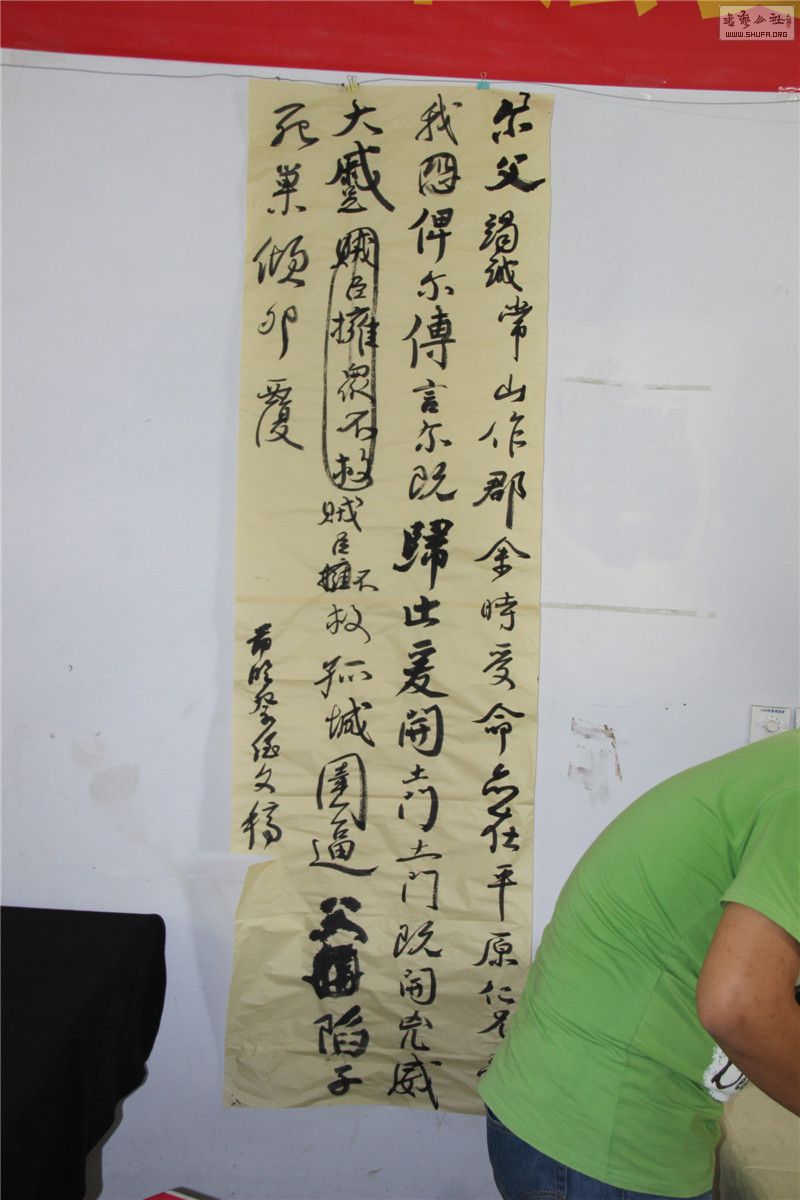 尔父竭誠常山作郡余時受命亦在平原仁兄
我恐俾尔傳言尔既歸止爰開土門土門既開兇威
大蹙賊臣擁眾不救賊臣擁不救孤城圍逼父陷子
死巢傾卵覆
临祭侄文稿
書藝公社
WWW.SHUFA.ORG